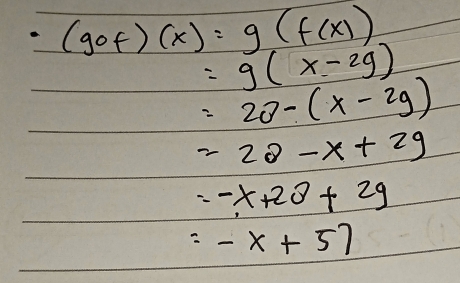 • (gof)(x) = g(f(x))
= g(x-29)
= 28-(x-29)
= 28-x+29
= -x+28+29
= -x+57